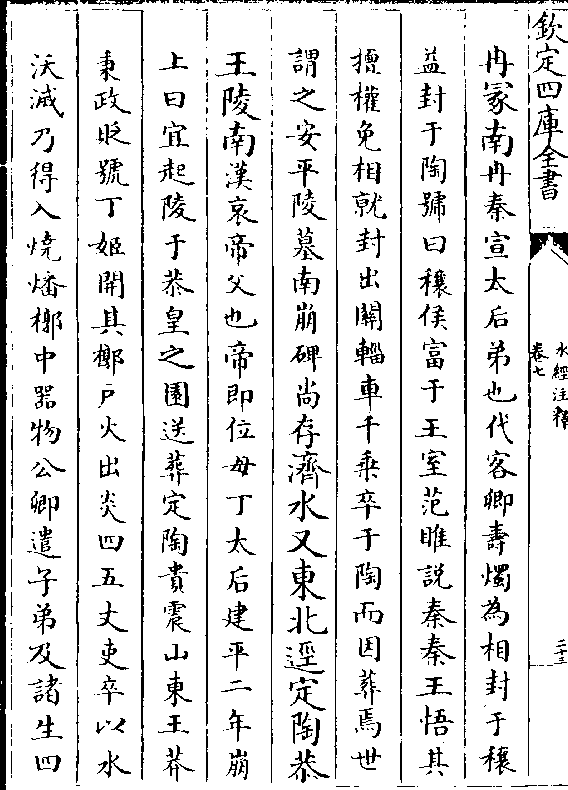 欽定四庫全書
水經注釋
卷七
二十三
冉冢南冉秦宣太后弟也代客卿壽燭為相封于穰
益封于陶號曰穰侯富于王室范雎説秦秦王悟其
擅權免相就封出關輜車千乗卒于陶而因葬焉世
謂之安平陵墓南崩碑尚存濟水又東北逕定陶恭
王陵南漢哀帝父也帝即位母丁太后建平二年崩
上曰宜起陵于恭皇之園送葬定陶貴震山東王莽
秉政貶號丁姬開其槨戸火出炎四五丈吏卒以水
沃滅乃得入燒燔槨中器物公卿遣子弟及諸生四